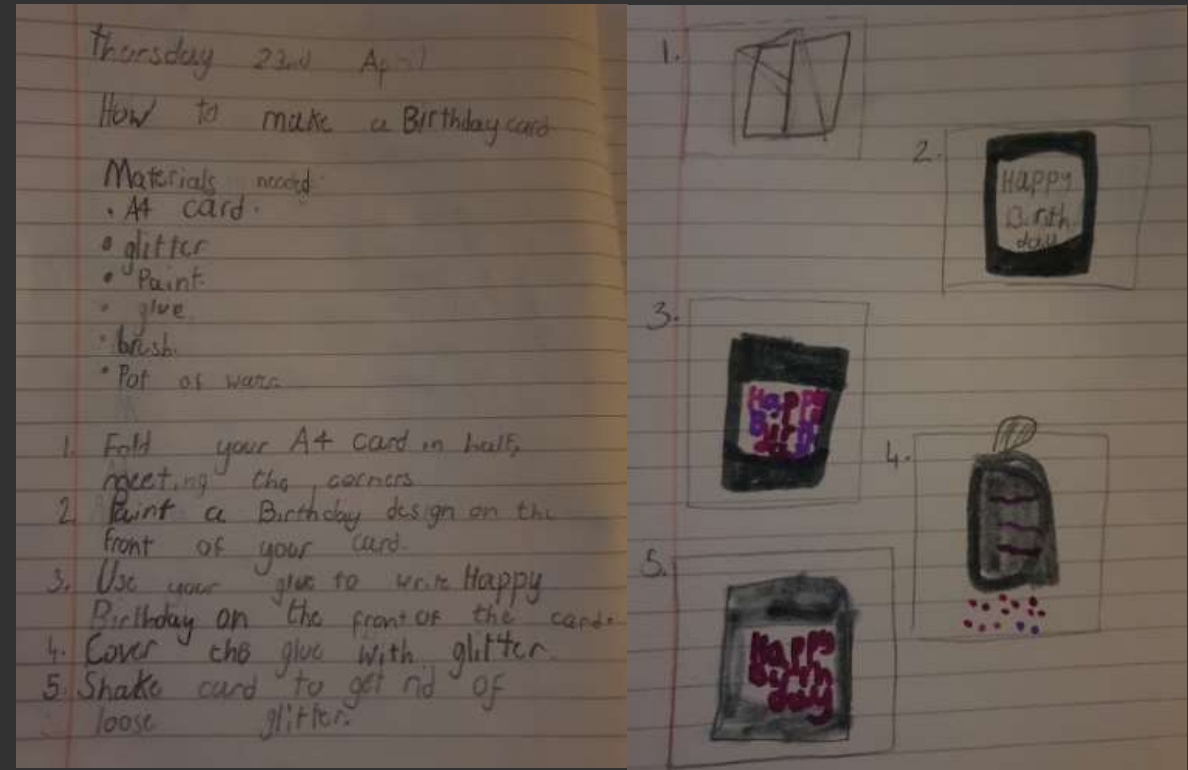 thursday 23rd April
How to make a Birthday card
Materials needed
• A4 card.
• glitter
• Paint
• glue
• brush.
• Pot of
1. Fold your A4 card in half,
meeting the corners
2. Paint a Birthday design on the
front of your card.
3. Use your glue to write Happy
Birthday on the front of the card.
4. Cover the glue with glitter.
5. Shake card to get rid of
loose glitter.
1.
2.
Happy
Birth
day
3.
Happy
Birth
4.
5.
Happy
Birth
day